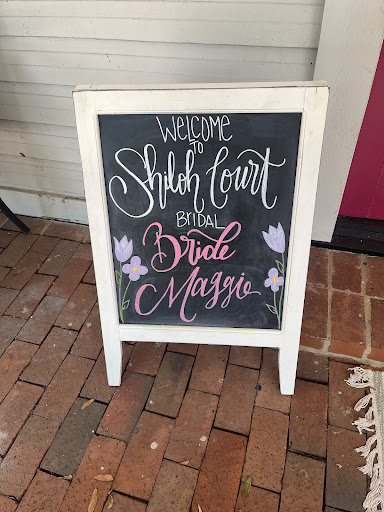 WELCOME
TO
Shiloh Court
BRIDAL
Bride
Maggie